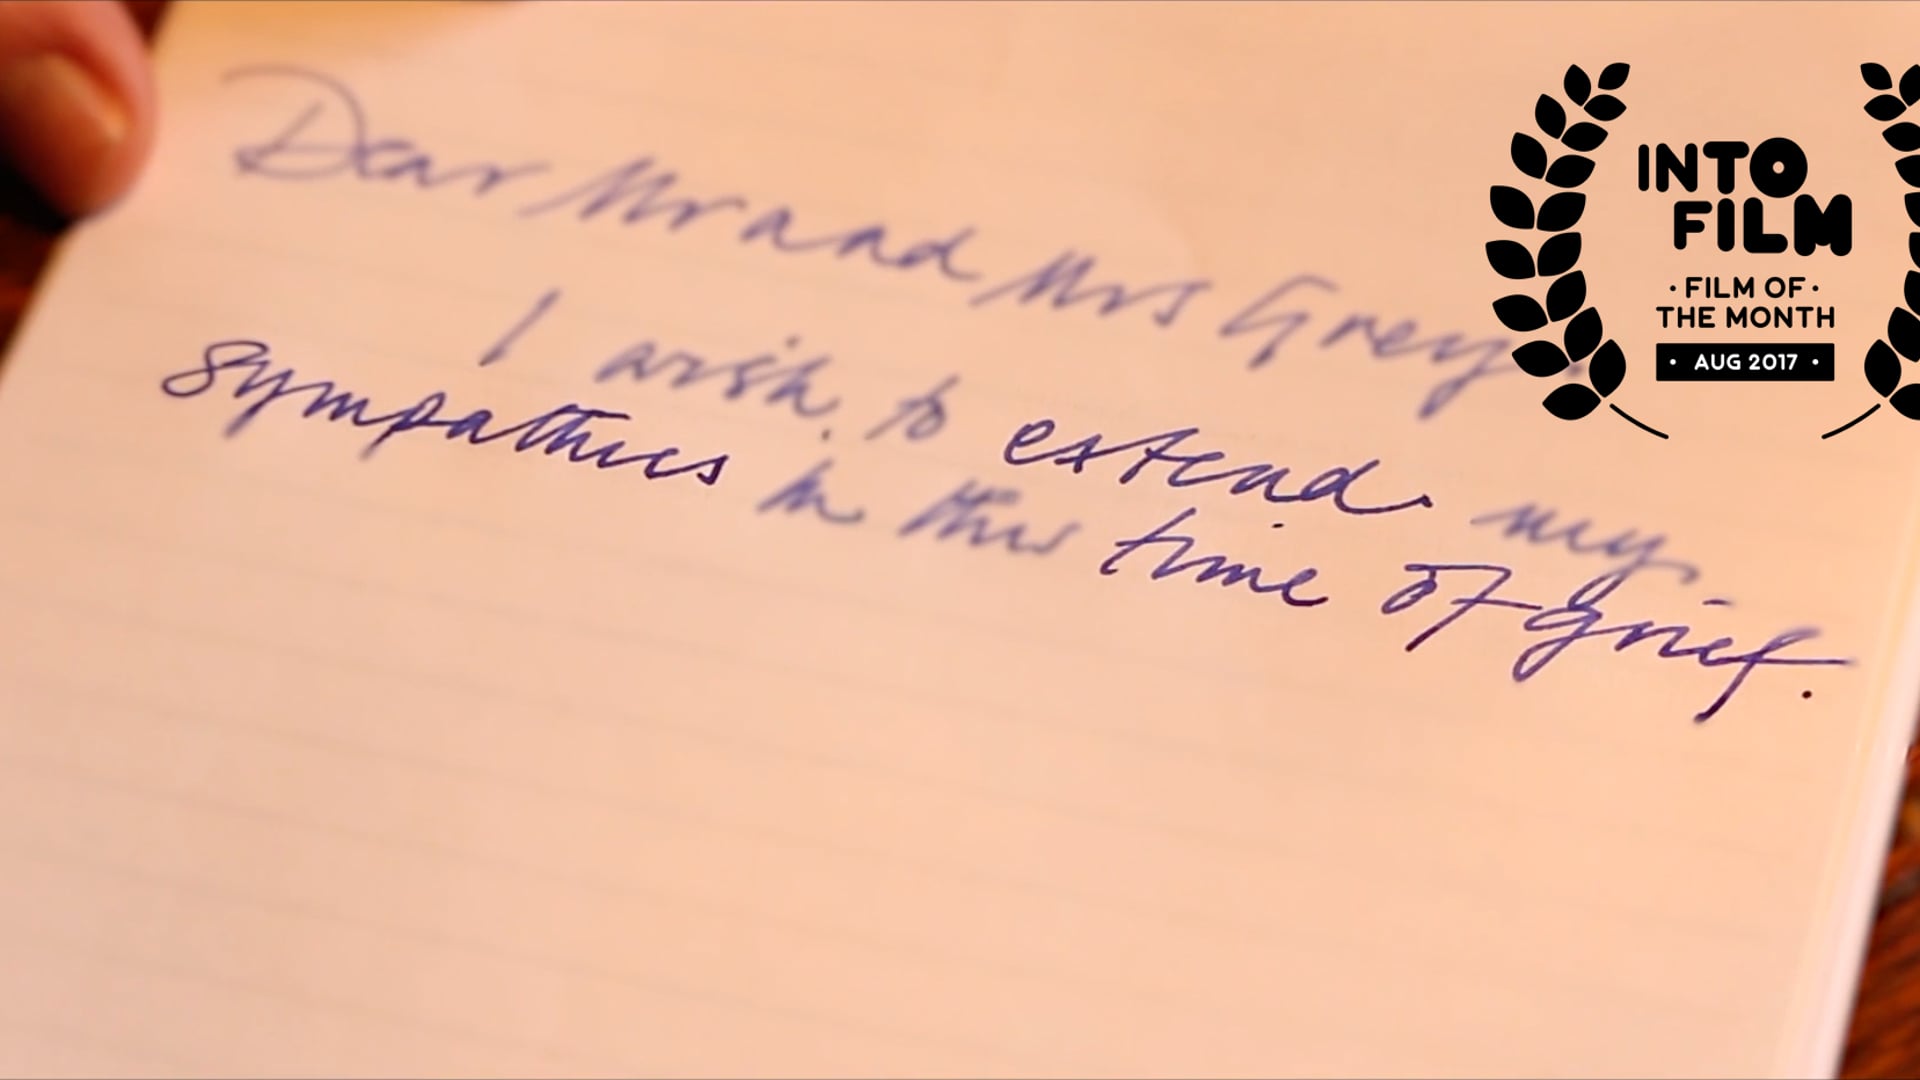 Dear Mr and Mrs Grey.
I wish to extend my
sympathies in this time of grief.
INTO
FILM
· FILM OF ·
THE MONTH
· AUG 2017 ·